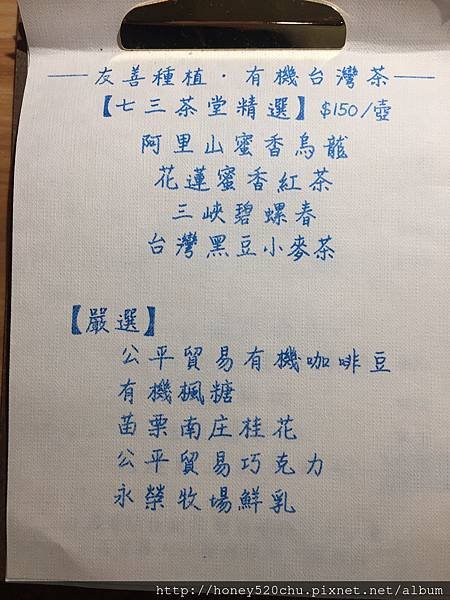 友善種植·有機台灣茶
【七三茶堂精選】$150/壺
阿里山蜜香烏龍
花蓮蜜香紅茶
三峽碧螺春
台灣黑豆小麥茶
【嚴選】
公平貿易有機咖啡豆
有機楓糖
苗栗南庄桂花
公平貿易巧克力
永榮牧場鮮乳
http://honey520chu.pixnet.net/album